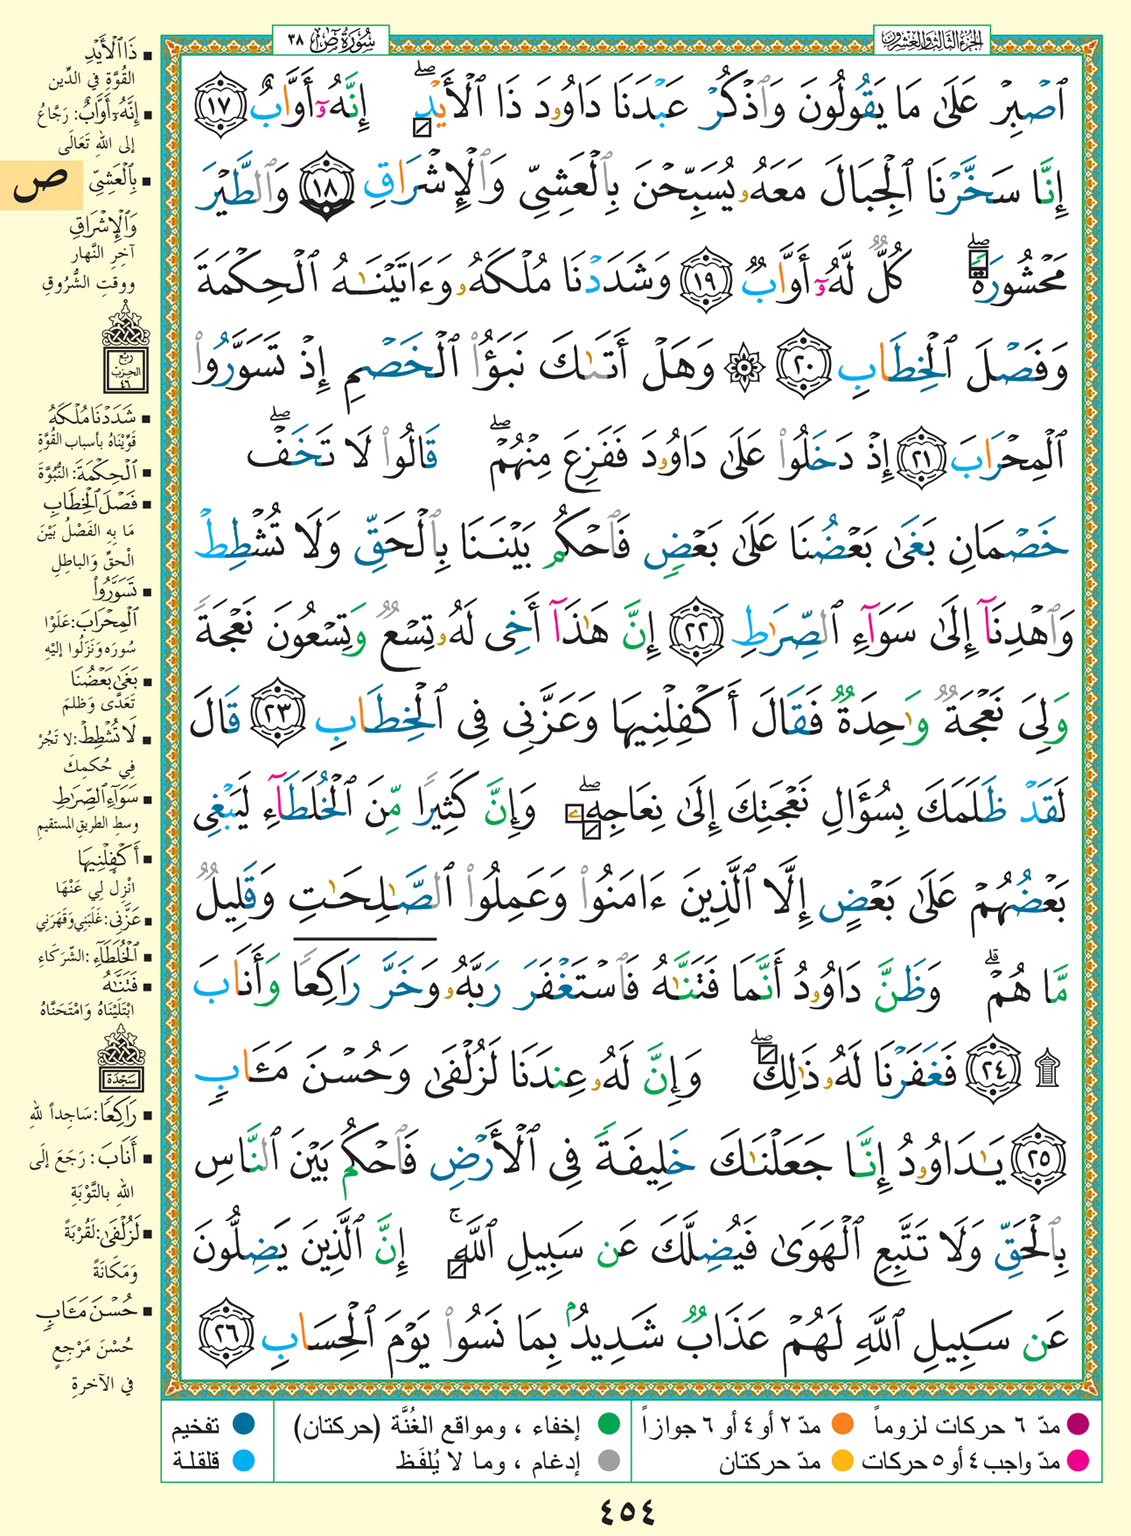 الجزء الثالث والعشرون
سُورَةُ صٓ ٣٨
ٱصۡبِرۡ عَلَىٰ مَا يَقُولُونَ وَٱذۡكُرۡ عَبۡدَنَا دَاوُۥدَ ذَا ٱلۡأَيۡدِۖ إِنَّهُۥٓ أَوَّابٌ ١٧
إِنَّا سَخَّرۡنَا ٱلۡجِبَالَ مَعَهُۥ يُسَبِّحۡنَ بِٱلۡعَشِيِّ وَٱلۡإِشۡرَاقِ ١٨ وَٱلطَّيۡرَ
مَحۡشُورَةٗۖ كُلّٞ لَّهُۥٓ أَوَّابٞ ١٩ وَشَدَدۡنَا مُلۡكَهُۥ وَءَاتَيۡنَٰهُ ٱلۡحِكۡمَةَ
وَفَصۡلَ ٱلۡخِطَابِ ٢٠ ۞ وَهَلۡ أَتَىٰكَ نَبَؤُاْ ٱلۡخَصۡمِ إِذۡ تَسَوَّرُواْ
ٱلۡمِحۡرَابَ ٢١ إِذۡ دَخَلُواْ عَلَىٰ دَاوُۥدَ فَفَزِعَ مِنۡهُمۡۖ قَالُواْ لَا تَخَفۡۖ
خَصۡمَانِ بَغَىٰ بَعۡضُنَا عَلَىٰ بَعۡضٖ فَٱحۡكُم بَيۡنَنَا بِٱلۡحَقِّ وَلَا تُشۡطِطۡ
وَٱهۡدِنَآ إِلَىٰ سَوَآءِ ٱلصِّرَٰطِ ٢٢ إِنَّ هَٰذَآ أَخِي لَهُۥ تِسۡعٞ وَتِسۡعُونَ نَعۡجَةٗ
وَلِيَ نَعۡجَةٞ وَٰحِدَةٞ فَقَالَ أَكۡفِلۡنِيهَا وَعَزَّنِي فِي ٱلۡخِطَابِ ٢٣ قَالَ
لَقَدۡ ظَلَمَكَ بِسُؤَالِ نَعۡجَتِكَ إِلَىٰ نِعَاجِهِۦۖ وَإِنَّ كَثِيرٗا مِّنَ ٱلۡخُلَطَآءِ لَيَبۡغِي
بَعۡضُهُمۡ عَلَىٰ بَعۡضٍ إِلَّا ٱلَّذِينَ ءَامَنُواْ وَعَمِلُواْ ٱلصَّٰلِحَٰتِ وَقَلِيلٞ
مَّا هُمۡۗ وَظَنَّ دَاوُۥدُ أَنَّمَا فَتَنَّٰهُ فَٱسۡتَغۡفَرَ رَبَّهُۥ وَخَرَّۤ رَاكِعٗاۤ وَأَنَابَ
۩ ٢٤ فَغَفَرۡنَا لَهُۥ ذَٰلِكَۖ وَإِنَّ لَهُۥ عِندَنَا لَزُلۡفَىٰ وَحُسۡنَ مَـَٔابٖ
٢٥ يَٰدَاوُۥدُ إِنَّا جَعَلۡنَٰكَ خَلِيفَةٗ فِي ٱلۡأَرۡضِ فَٱحۡكُم بَيۡنَ ٱلنَّاسِ
بِٱلۡحَقِّ وَلَا تَتَّبِعِ ٱلۡهَوَىٰ فَيُضِلَّكَ عَن سَبِيلِ ٱللَّهِۚ إِنَّ ٱلَّذِينَ يَضِلُّونَ
عَن سَبِيلِ ٱللَّهِ لَهُمۡ عَذَابٞ شَدِيدُۢ بِمَا نَسُواْ يَوۡمَ ٱلۡحِسَابِ ٢٦
ذَا ٱلۡأَيۡدِ
القُوَّةِ في الدِّين
إِنَّهُۥٓ أَوَّابٌ: رَجَّاعٌ
إلى اللهِ تَعَالَى
بِٱلۡعَشِيِّ
وَٱلۡإِشۡرَاقِ
آخِرِ النَّهار
ووقتِ الشُّرُوقِ
ص
ربع
الحزب
٤٦
شَدَدۡنَا مُلۡكَهُ
قَوَّيْنَاهُ بأسبابِ القُوَّةِ
ٱلۡحِكۡمَةَ: النُّبُوَّةَ
فَصۡلَ ٱلۡخِطَابِ
مَا بِهِ الفَصْلُ بَيْنَ
الْحَقِّ وَالباطِلِ
تَسَوَّرُواْ
ٱلۡمِحۡرَابَ: عَلَوْا
سُورَه وَنَزَلُوا إليْهِ
بَغَىٰ بَعۡضُنَا
تَعَدَّى وَظَلمَ
لَا تُشۡطِطۡ: لا تَجُرْ
فِي حُكمِكَ
سَوَآءِ ٱلصِّرَٰطِ
وسطِ الطريقِ المستقيمِ
أَكۡفِلۡنِيهَا
انْزِل لِي عَنْهَا
عَزَّنِي: غَلَبَنِي وَقَهَرَنِي
ٱلۡخُلَطَآءِ: الشُّرَكَاءِ
فَتَنَّٰهُ
ابْتَلَيْنَاهُ وَامْتَحَنَّاهُ
سَجْدَة
رَاكِعٗا: سَاجِداً للهِ
أَنَابَ: رَجَعَ إلَى
اللهِ بالتَّوْبَةِ
لَزُلۡفَىٰ: لَقُرْبَةً
وَمَكَانَةً
حُسۡنَ مَـَٔابٖ
حُسْنَ مَرْجِعٍ
في الآخرةِ
مدّ ٦ حركات لزوماً مدّ ٢ أو ٤ أو ٦ جوازاً إخفاء ، ومواقع الغُنَّة (حركتان) تفخيم
مدّ واجب ٤ أو ٥ حركات مدّ حركتان إدغام ، وما لا يُلفَظ قلقلة
٤٥٤